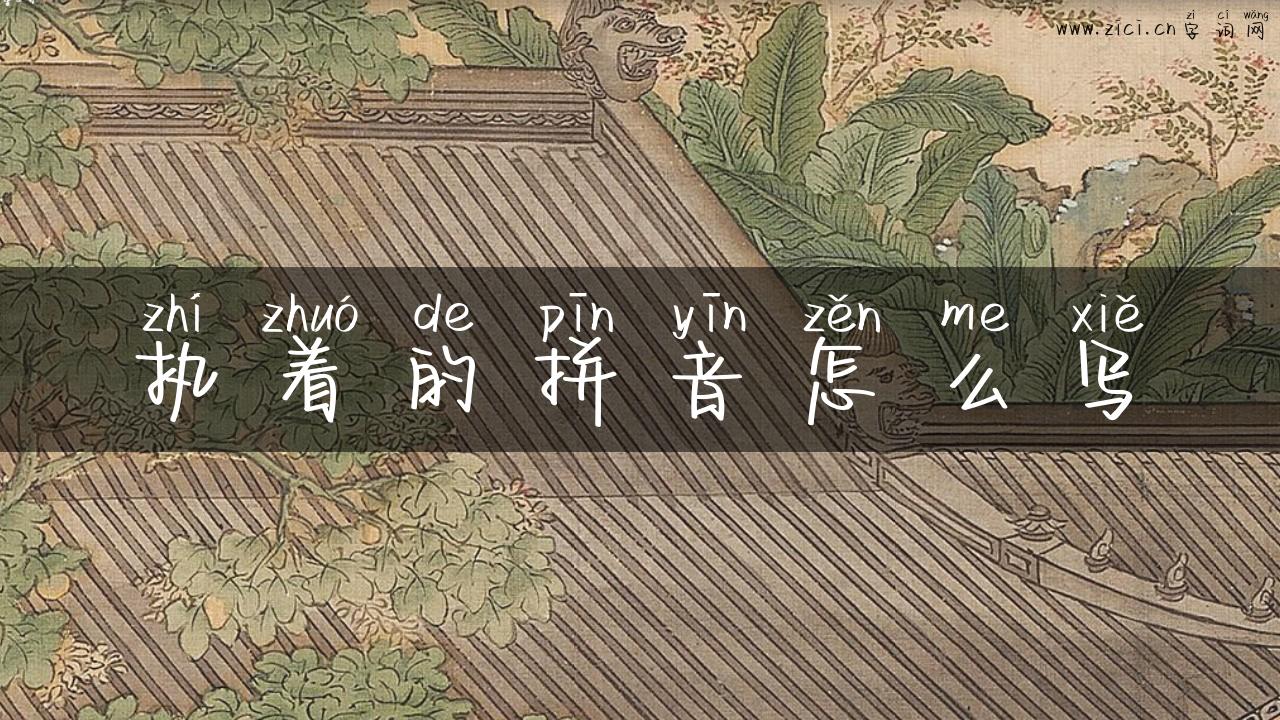 zì cí wǎng
www.zici.cn 字词网
zhí zhuó de pīn yīn zěn me xiě
执着的拼音怎么写